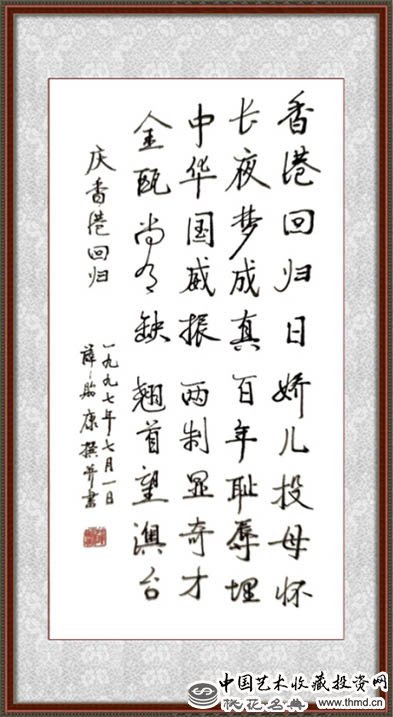 香港回归日娇儿投母怀
长夜梦成真百年耻辱埋
中华国威振两制显奇才
金瓯尚有缺翘首望澳台
庆香港回归
一九九七年七月一日
薛 康撰并书
中国艺术收藏投资网
收藏名典
www.thmd.cn